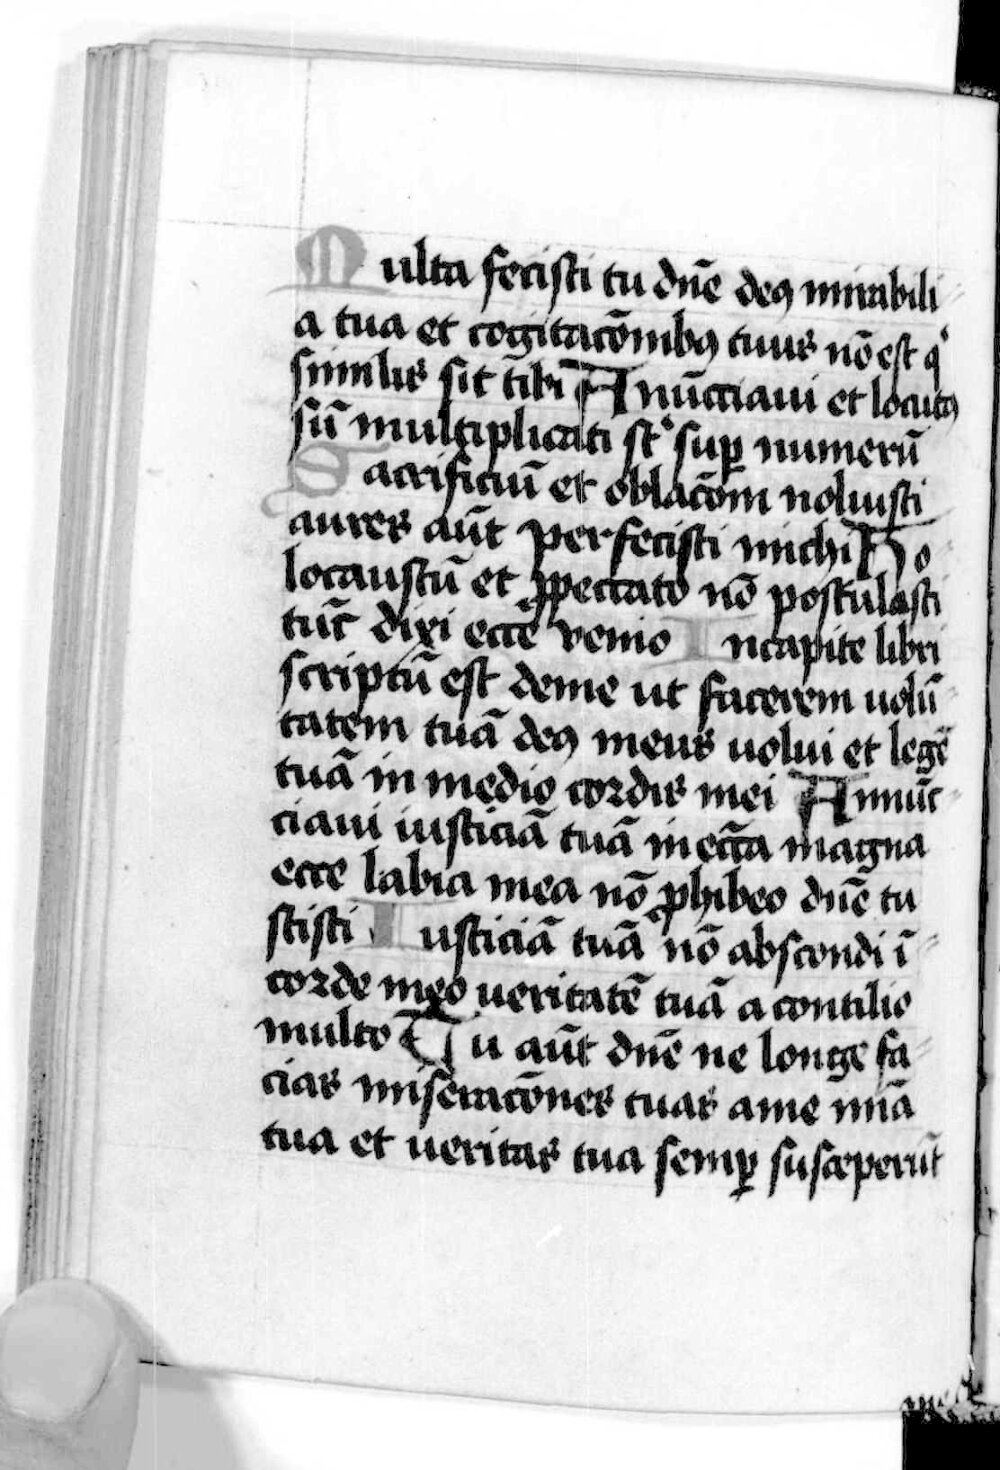 Multa fecisti tu dn̄e deꝰ mirabili
a tua et cogitacōnibꝰ tuis nō est qͥ
similis sit tibi Anūcciaui et locutꝰ
sū multiplicati st̄ suꝑ numerū
Sacrificiū et oblacōm noluisti
aures aūt perfecisti michi Ho
locaustū et ꝓpeccato nō postulasti
tūc dixi ecce venio Incapite libri
scriptū est deme ut facerem uolū
tatem tuā deꝰ meus uolui et legē
tuā in medio cordis mei Annūc
ciaui iusticiā tuā in ecc̄a magna
ecce labia mea nō ꝓhibeo dn̄e tu
scisti Iusticiā tuā nō abscondi ī
corde meo ueritatē tuā a contilio
multo Tu aūt dn̄e ne longe fa
cias miseracōnes tuas ame mīa
tua et ueritas tua semꝑ susceperūt